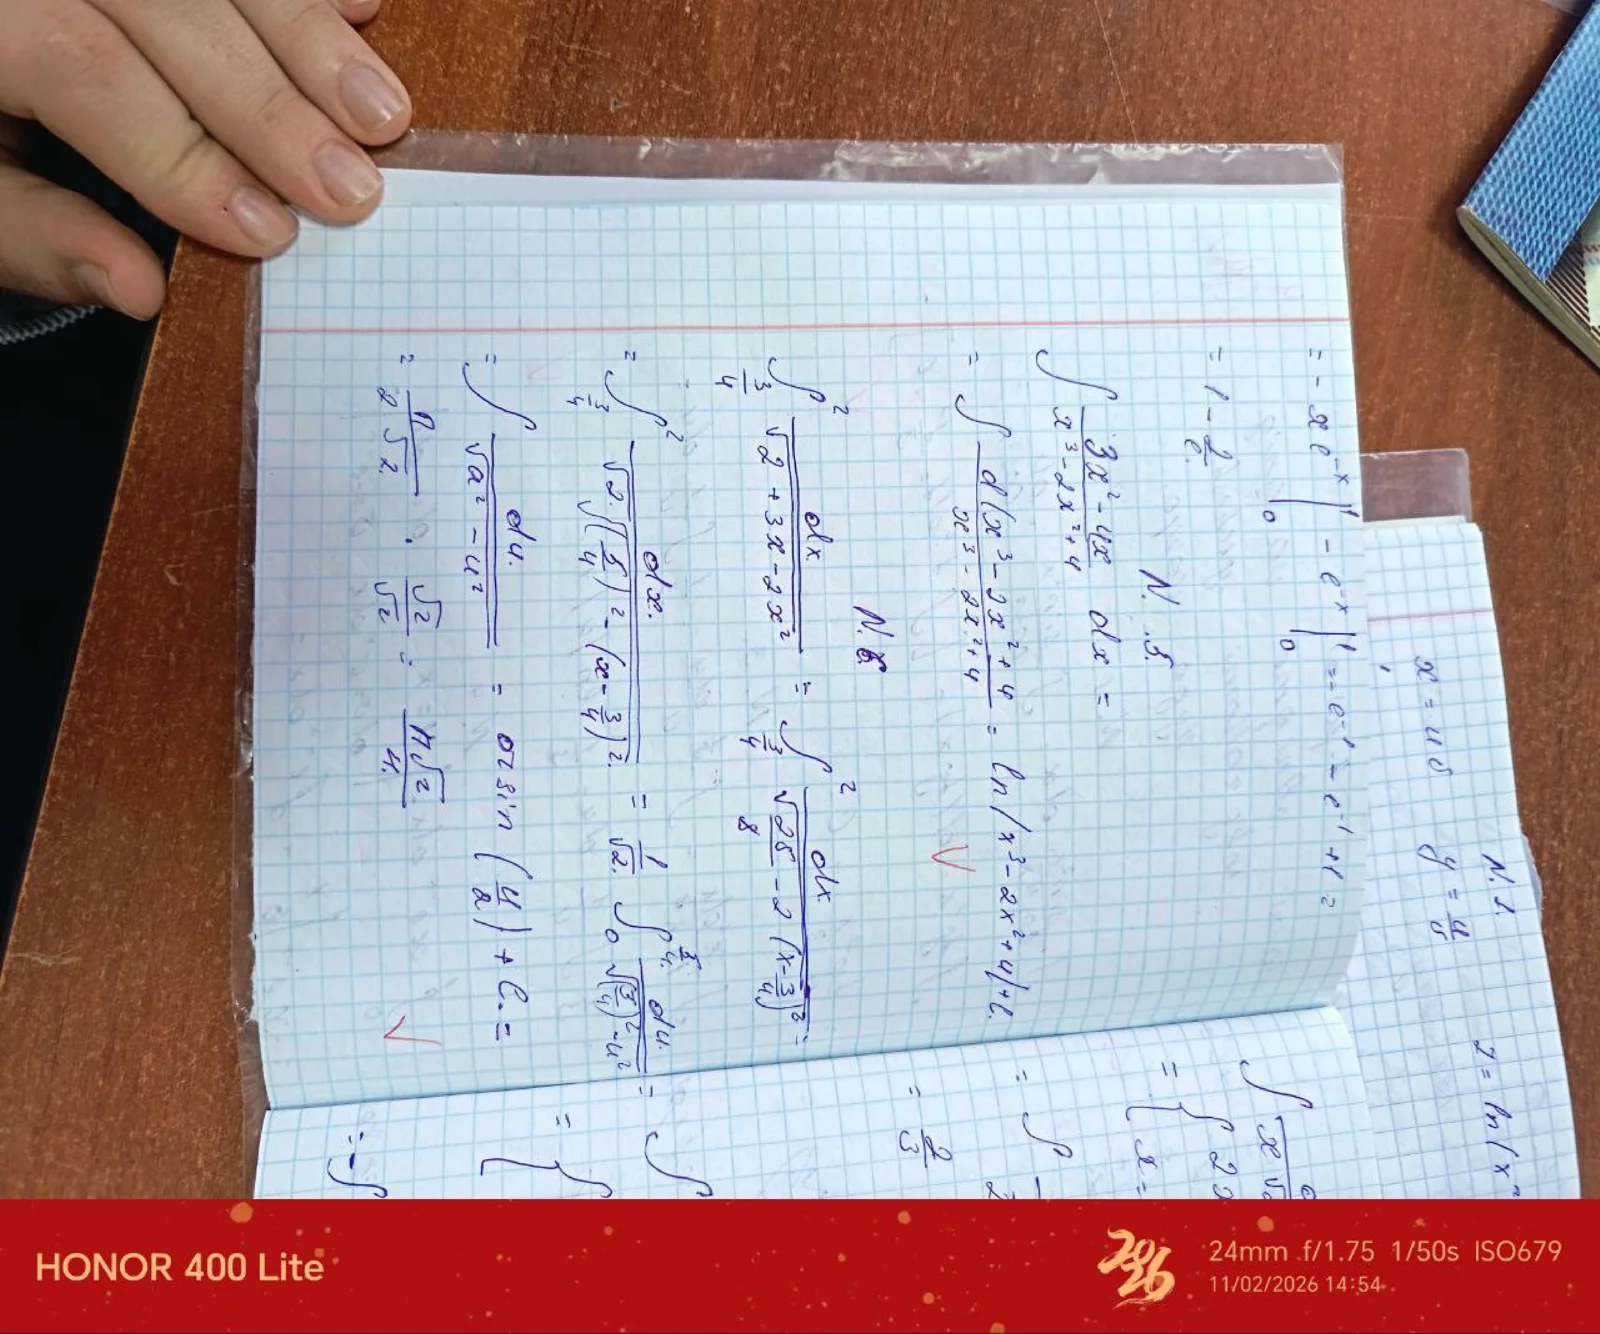 = - x e^{-x} |_0^1 - e^{-x} |_0^1 = - e^{-1} - e^{-1} + 1 =
= 1 - 2/e
N. 5.
∫ (3x² - 4x)/(x³ - 2x² + 4) dx =
= ∫ d(x³ - 2x² + 4)/(x³ - 2x² + 4) = ln|x³ - 2x² + 4| + C.
N. 6.
∫_{3/4}^2 dx/√(2 + 3x - 2x²) = ∫_{3/4}^2 dx/√(25/8 - 2(x - 3/4)²) =
= ∫_{3/4}^2 dx./√(2·((5/4)² - (x - 3/4)²)) = 1/√2. ∫_0^{5/4.} du./√((3/4)² - u²) =
= ∫ du./√(a² - u²) = arsin (u/a) + C. =
= π/(2√2) · √2/√2 = π√2/4.
N. 1.
x = uv y = u/v z = ln(x²
= 2/3
HONOR 400 Lite
2026
24mm f/1.75 1/50s ISO679
11/02/2026 14:54